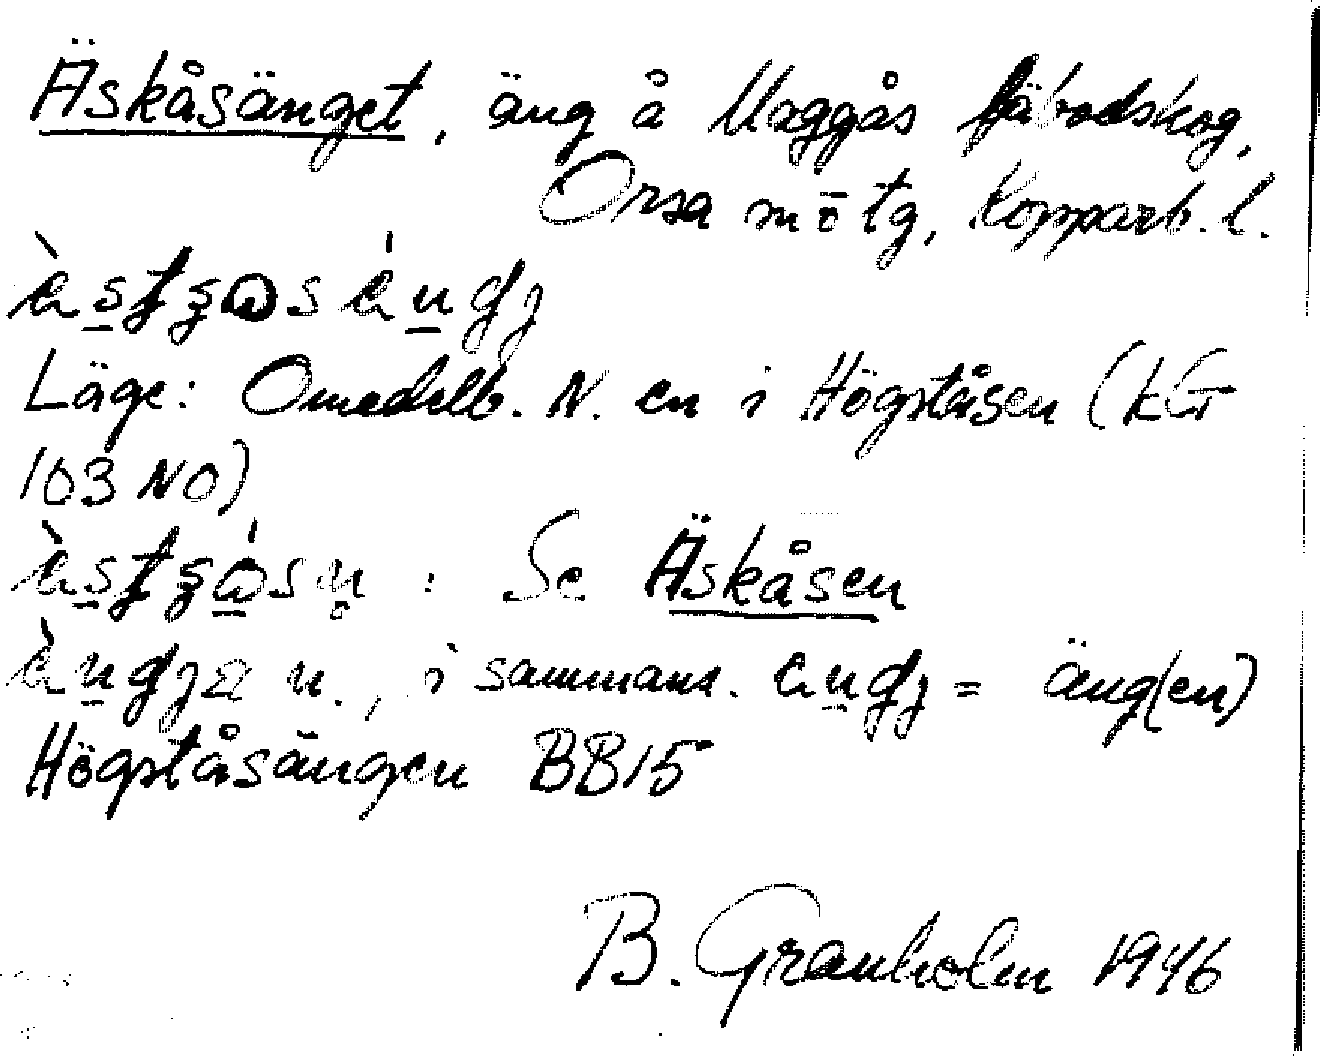 Äskåsänget, äng å Maggås fäbodskog,
Orsa m ö tg, Kopparb. l.
Läge: Omedelb. N. en i Högståsen (KG
103 NO)
: Se Äskåsen
n., i sammans. = äng(en)
Högståsängen BB15
B. Granholm 1946